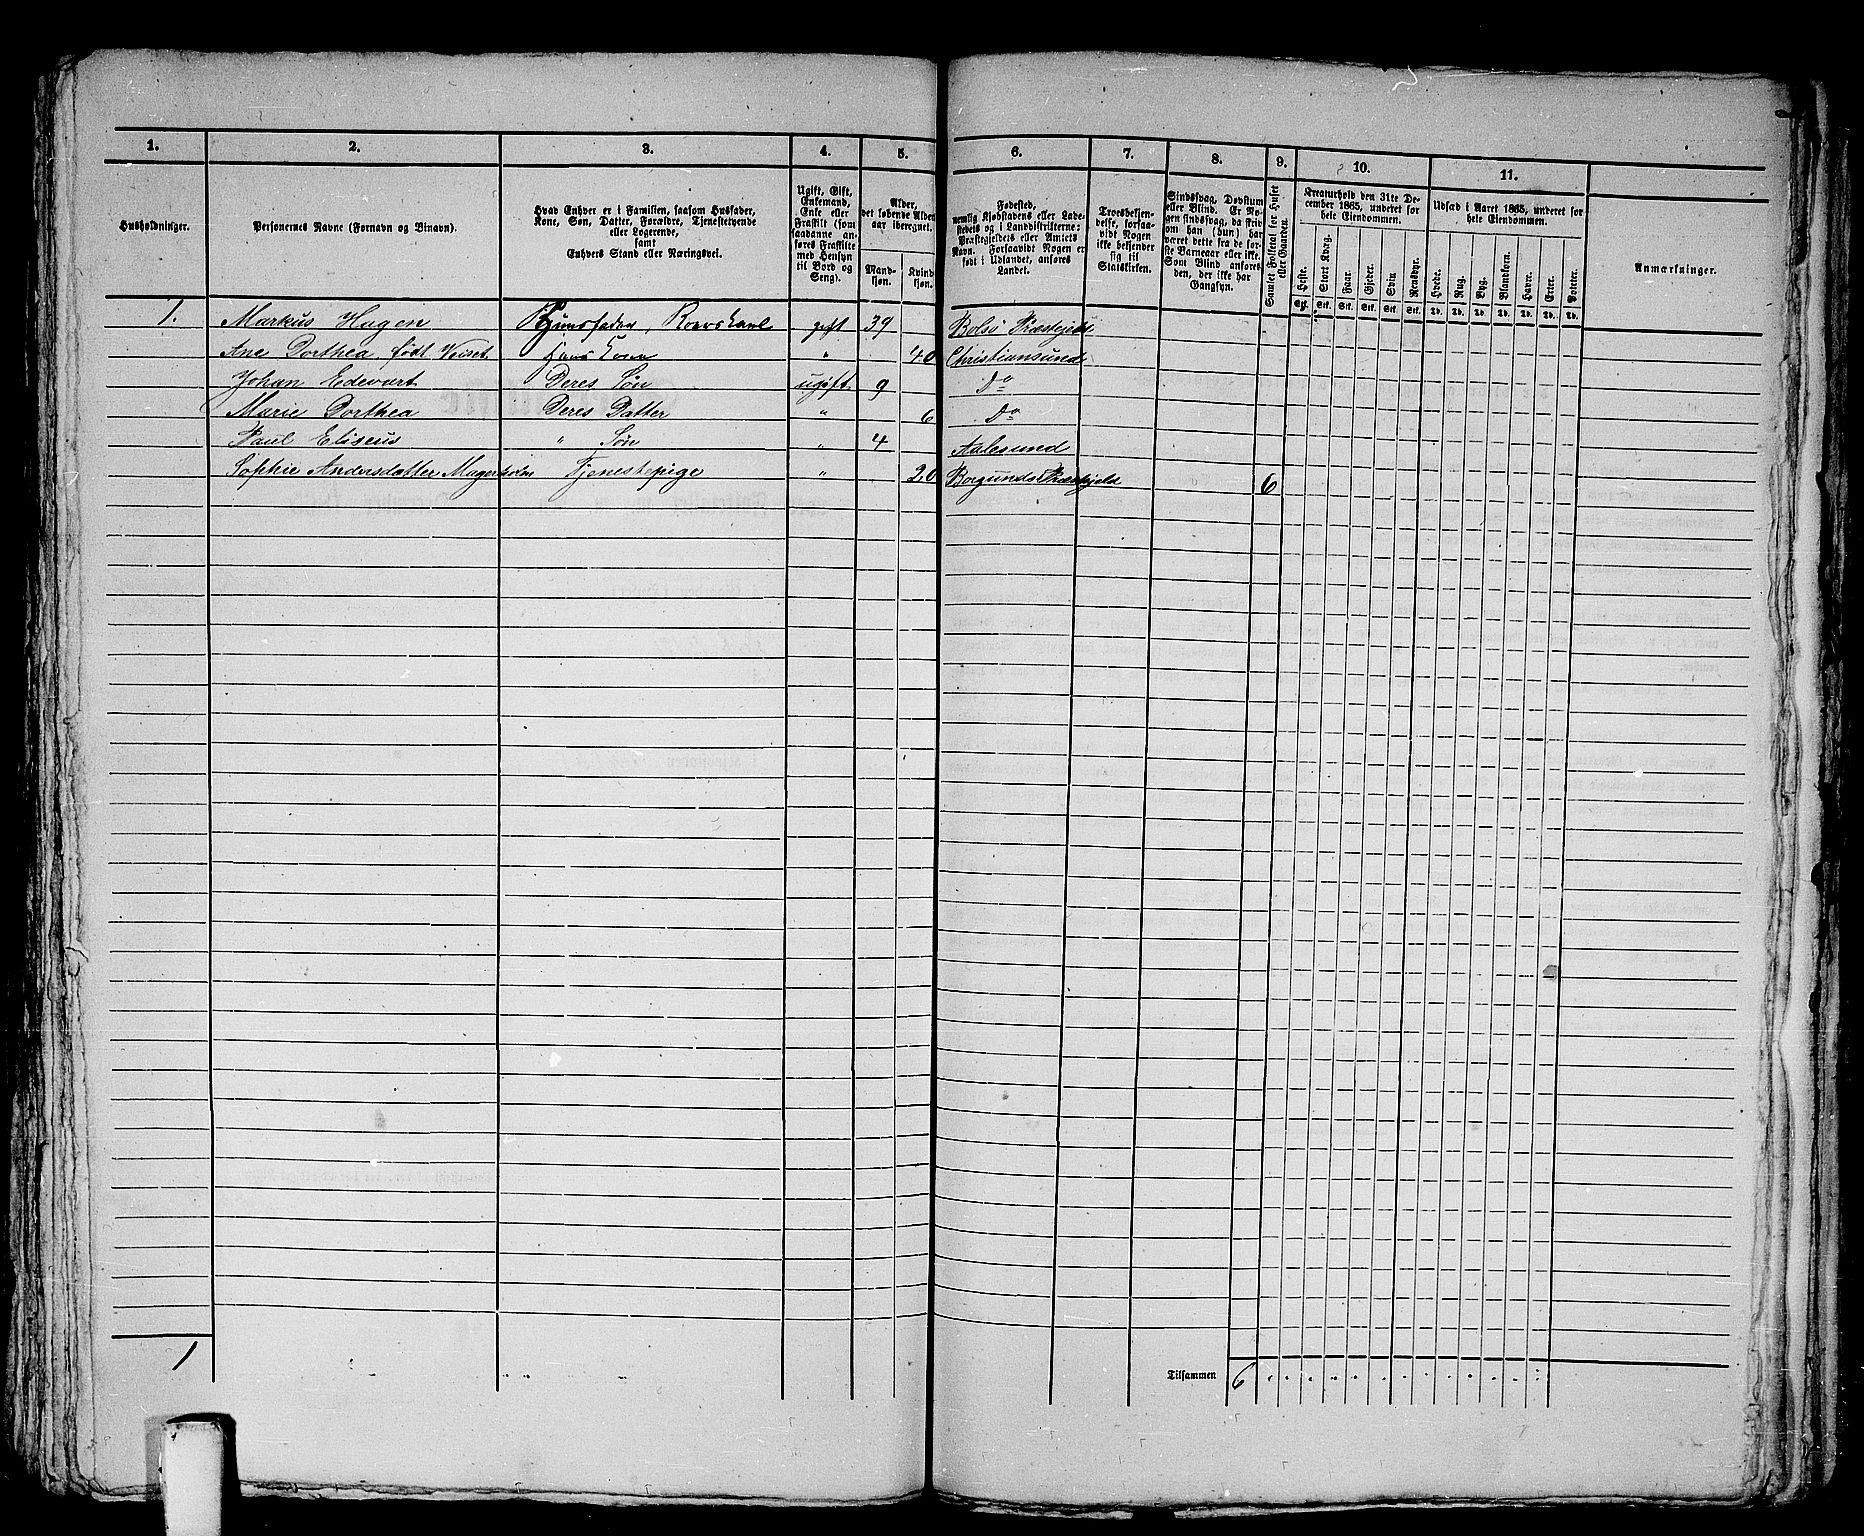 1. 2. 3. 4. 5. 6. 7. 8. 9. 10. 11.
Husholdninger.
Personernes Navne (Fornavn og Binavn).
Hvad Enhver er i Familien, saasom Husfader,
Kone, Søn, Datter, Forældre, Tjenestetyende
eller Logerende,
samt
Enhvers Stand eller Næringsvei.
Ugift, Gift,
Enkemand,
Enke eller
Fraskilt (som
saadanne an-
føres Fraskilte
med Hensyn
til Bord og
Seng).
Alder,
det løbende Alders-
aar iberegnet.
Mand-
kjøn.
Kvind-
kjøn.
Fødested,
nemlig Kjøbstadens eller Lade-
stedets og i Landdistrikterne:
Præstegjeldets eller Amtets
Navn. Forsaavidt Nogen er
født i Udlandet, anføres
Landet.
Troesbekjen-
delse, forsaa-
vidt Nogen
ikke bekjender
sig til
Statskirken.
Sindssvag, Døvstum
eller Blind. Er No-
gen sindssvag, da skriv
om han (hun) har
været dette fra de før-
ste Barneaar eller ikke.
Som Blind anføres
den, der ikke har
Gangsyn.
Samlet Folketal for Huset
eller Gaarden.
Kreaturhold den 31te De-
cember 1865, underet for
hele Eiendommen.
Heste. Stort Kvæg. Faar. Gjeder. Svin. Rensdyr.
Stk. Stk. Stk. Stk. Stk. Stk.
Udsæd i Aaret 1865, underet for
hele Eiendommen.
Hvede. Rug. Byg. Blandkorn. Havre. Erter. Poteter.
Td. Td. Td. Td. Td. Td. Td.
Anmærkninger.
1. Markus Hagen Huusfader, gift 39 Bolsø Præstejeld
Ane Dorthea født Veiset Hans Kone " 40 Christiansund
Johan Edevart Deres Søn ugift 9 Do
Marie Dorthea Deres Datter " 6 Do
Paul Eliseus " Søn " 4 Aalesund
Sophie Andersdatter Magerholm Tjenestepige " 20 Borgunds Præstejeld 6
1
Tilsammen 6